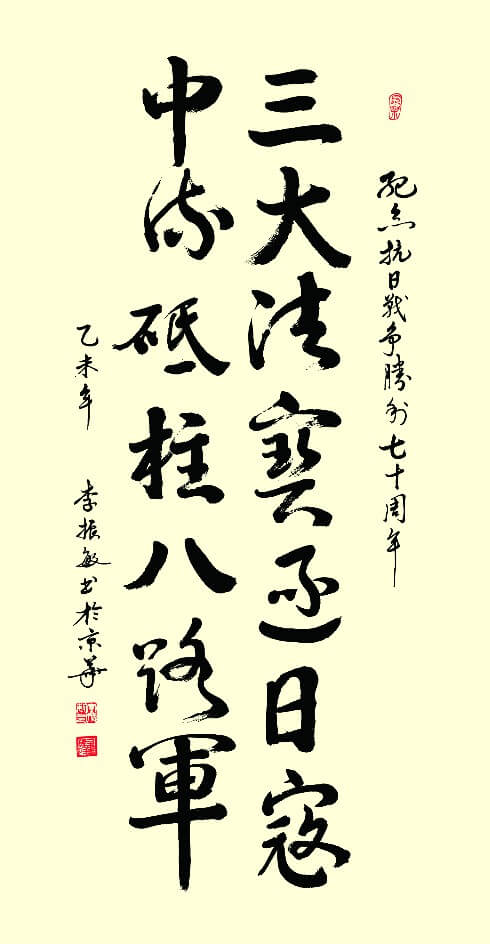 紀念抗日戰争勝利七十周年
三大法寶逐日寇
中流砥柱八路軍
乙未年 李振敏书於京華